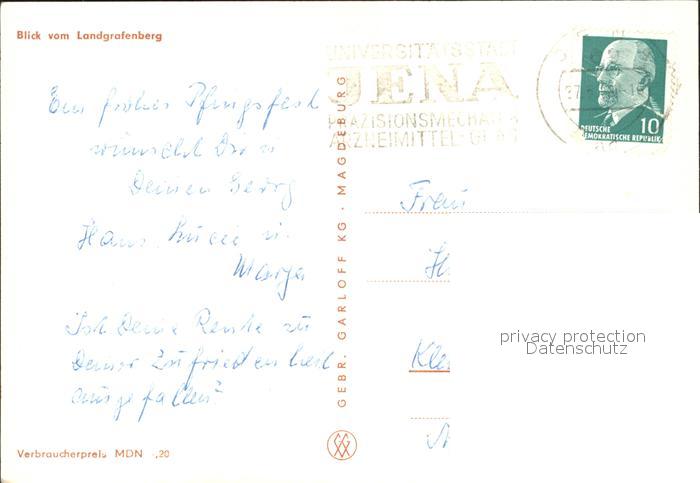 Blick vom Landgrafenberg
UNIVERSITÄTSSTADT
JENA
PRÄZISIONSMECHANIK
ARZNEIMITTEL · GLAS
DEUTSCHE
DEMOKRATISCHE REPUBLIK
10
Ein frohes Pfingstfest
wünscht Dir u
Deinen Georg
Hans, Lucie u.
Marga
Ist Deine Rente zu
Deiner Zufriedenheit
ausgefallen?
GEBR. GARLOFF KG · MAGDEBURG
Frau
H
Kle
privacy protection
Datenschutz
Verbraucherpreis MDN -,20